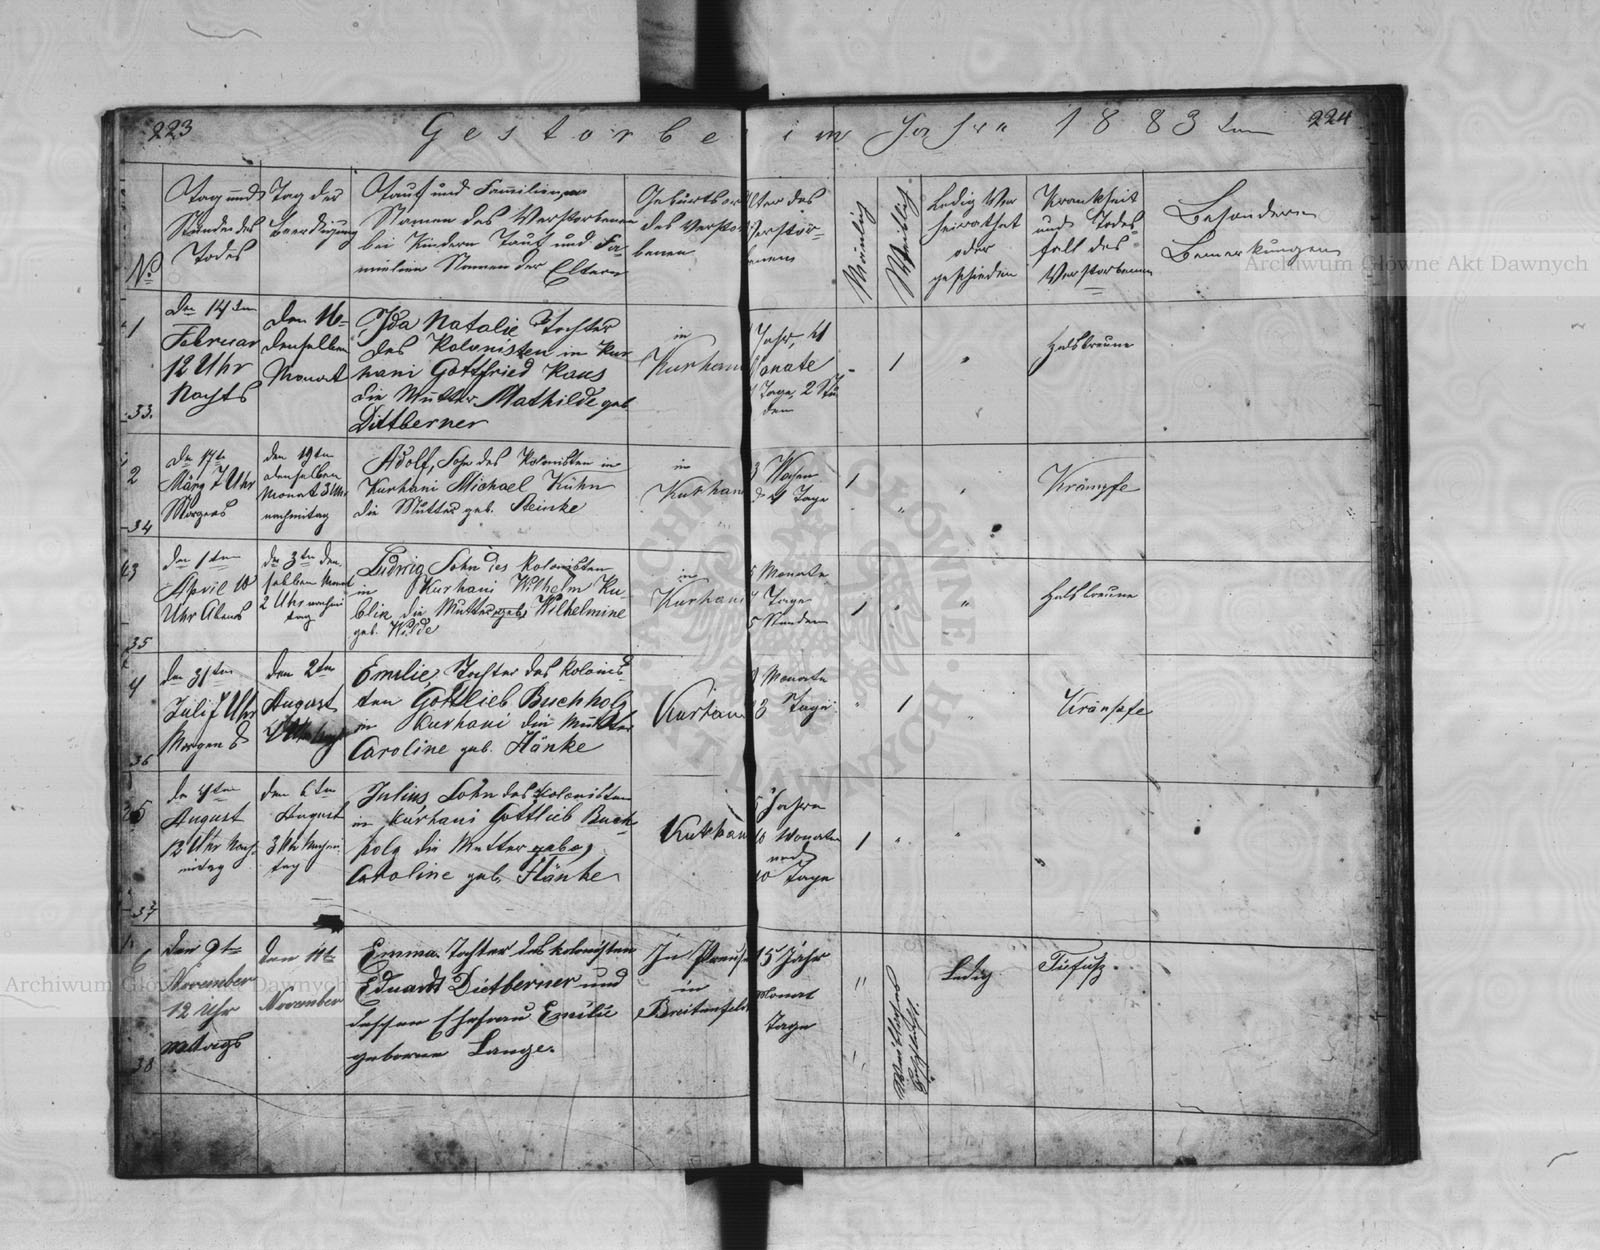 223
Gestorbe im Jahre 1883 ten
224
No
Tag und
Stunde des
Todes
Tag der
Beerdigung
Tauf und Familien
Namen des Verstorbenen
bei Kindern Tauf und Fa-
milien Namen der Eltern
Geburtsort
des Verstor
benen
Alter des
Verstor-
benen
Mänlig
Weiblig
Ledig Ver
heirathet
oder
geschieden
Krankheit
und Todes
fall des
Verstorbenen
Besondere
Bemerkungen
1
33.
den 14ten
Februar
12 Uhr
Nachts
den 16
denselben
Monat
Ida Natalie Tochter
des Kolonisten in Kur
hani Gottfried Raus
die Mutter Mathilde geb
Dittberner
in
Kurhani
Jahr, 11
Monate
Tage, 2 Stu
den
1
Halsbreune
2
34
den 17te
März 7 Uhr
Morgens
den 19ten
denselben
Monat 3 Uhr
nachmitag
Adolf, Sohn des Kolonisten in
Kurhani Michael Kühn
die Mutter geb. Steinke
in
Kurhani
3 Wochen
4 Tage
1
Krämpfe
3
35
den 1ten
April 10
Uhr Abends
den 3ten den
selben Monat
2 Uhr nachmi
tag
Ludwig Sohn des Kolonisten
in Kurhani Wilhelm Ku-
blik die Mutter geb. Wilhelmine
geb. Wilde
in
Kurhani
Monate
Tage
5 Stunden
1
Halsbreune
4
36
den 31ten
Juli 7 Uhr
Morgends
den 2ten
August
Emilie, Tochter des Kolonis-
ten Gottlieb Buchholz
in Kurhani die Mutter
Caroline geb. Hänke
Kurhani
Monate
3 Tage
1
Krämpfe
5
37
den 4ten
August
12 Uhr Nach-
mitag
den 6ten
August
3 Uhr Nachmi
tag
Julius, Sohn des Kolonisten
in Kurhani Gottlieb Buch-
holz die Mutter
Caroline geb. Hänke
Kurhani
5 Jahre
10 Monate
und
10 Tage
1
6
38
den 9te
November
12 Uhr
mitags
den 11te
November
Emma Tochter des Kolonisten
Eduards Dietberner und
dessen Ehefrau Emilie
geborene Lange.
In Preuse
in
Breitenfeld
15 Jahr
Monat
Tage
Weibliches
Geschlecht.
Ledig
Archiwum Główne Akt Dawnych
Archiwum Główne Akt Dawnych
ARCHIWUM GŁÓWNE AKT DAWNYCH